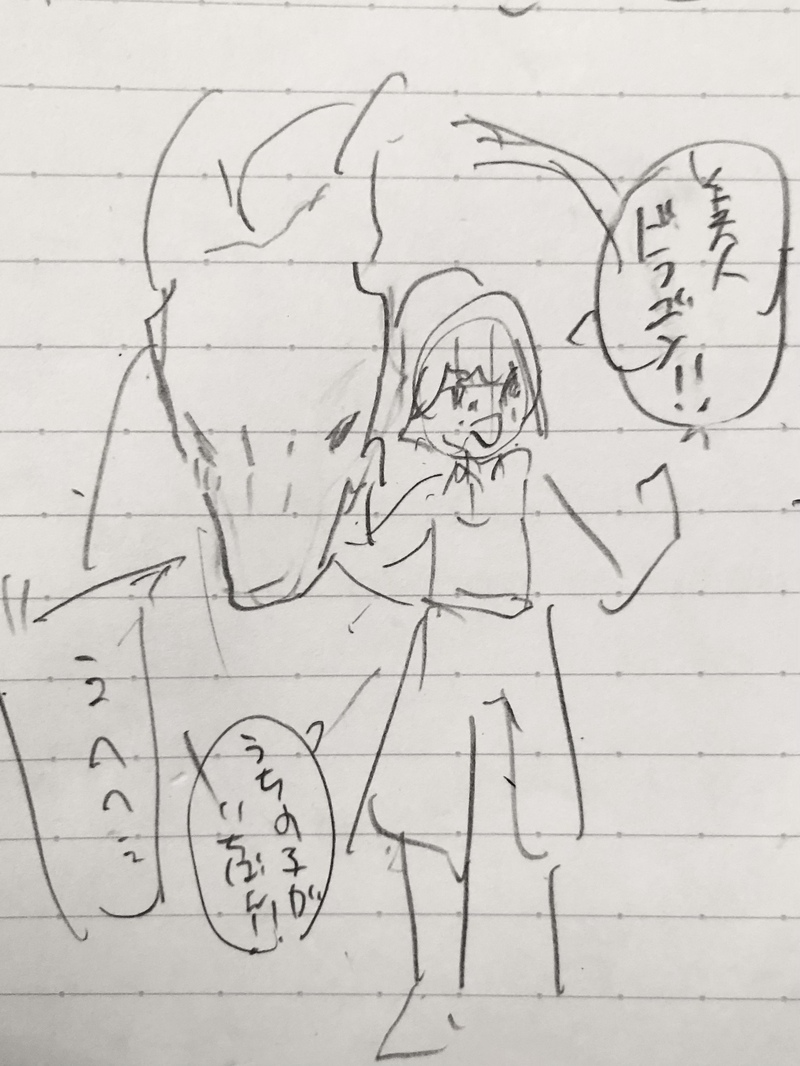 美人
ドラゴン!!
うちの子が
いちばん!!